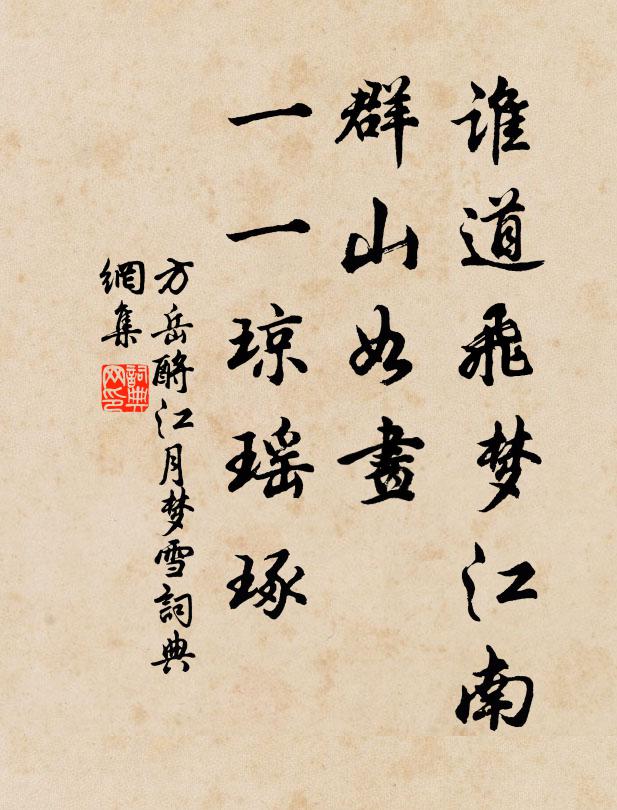 谁道飛梦江南
群山如畫
一一琼瑶琢
方岳酹江月梦雪詞典
網集
詞典网印